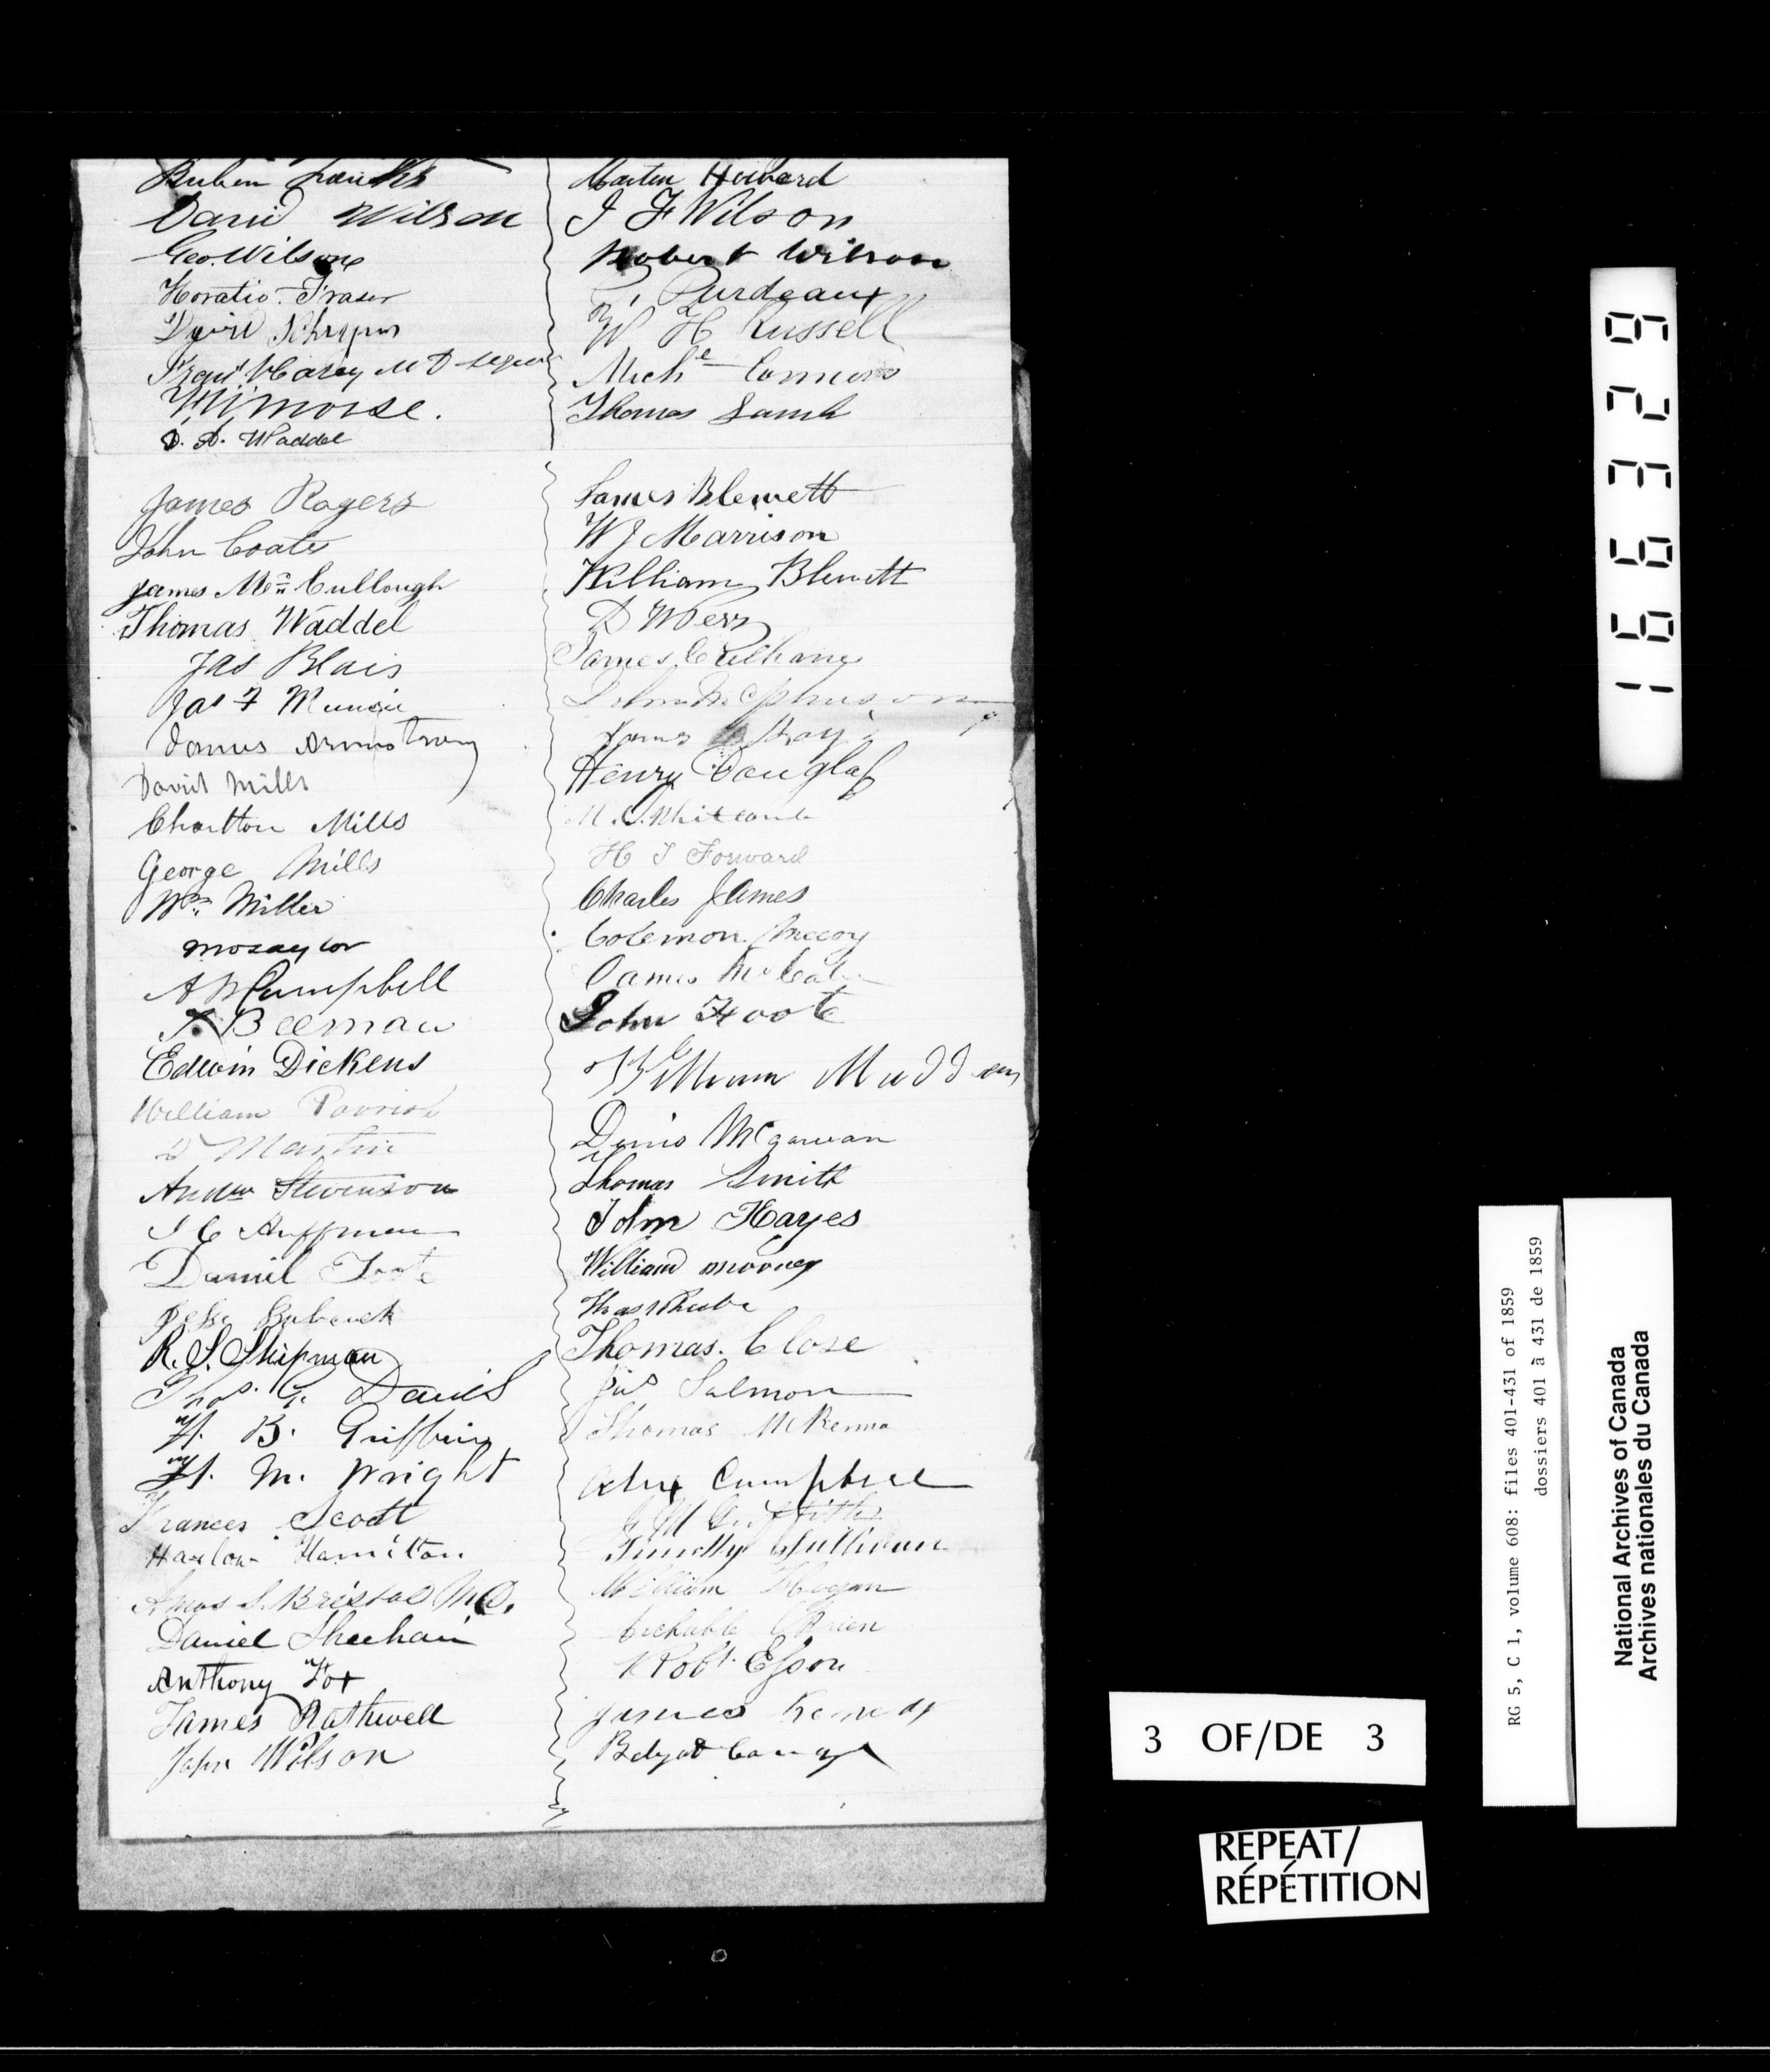 Ruben
David Wilson
Geo. Wilson
Horatio Fraser
David
M D
Morse.
Waddel
James Rogers
John Coates
James McCullough
Thomas Waddel
Jas Blair
Jas F
James Armstrong
David Mills
Charlton Mills
George Mills
Wm Miller
A Campbell
Beeman
Edwin Dickens
William Parrish
D Martin
Andw Stevenson
J C Huffman
Daniel Foote
Jesse Babcock
R. S. Shipman
Thos. G. Davis
H. B. Griffin
H. M. Wright
Frances Scott
Harlow Hamilton
Amos S. Bristol M.D.
Daniel Sheehan
Anthony Fox
James Rathwell
John Wilson
Martin
J F Wilson
Robert Wilson
Purdeaux
W H Russell
Michl Connors
Thomas Lamb
James Blewett
W J Marrison
William Blewett
D
James
John McPherson
James
Henry Douglass
Whitcomb
H T Forward
Charles James
Colemon Mccoy
James
John Foote
William Madden
Denis McGarvan
Thomas Smith
John Hayes
William mooney
Thos
Thomas. Close
Jas Salmon
Thomas McKenna
Alex Campbell
J M Griffith
Timothy Sullivan
William Hogan
O'Brien
Robt. Esson
James Kennedy
3 OF/DE 3
REPEAT/
RÉPÉTITION
166329
RG 5, C 1, volume 608: files 401-431 of 1859
dossiers 401 à 431 de 1859
National Archives of Canada
Archives nationales du Canada